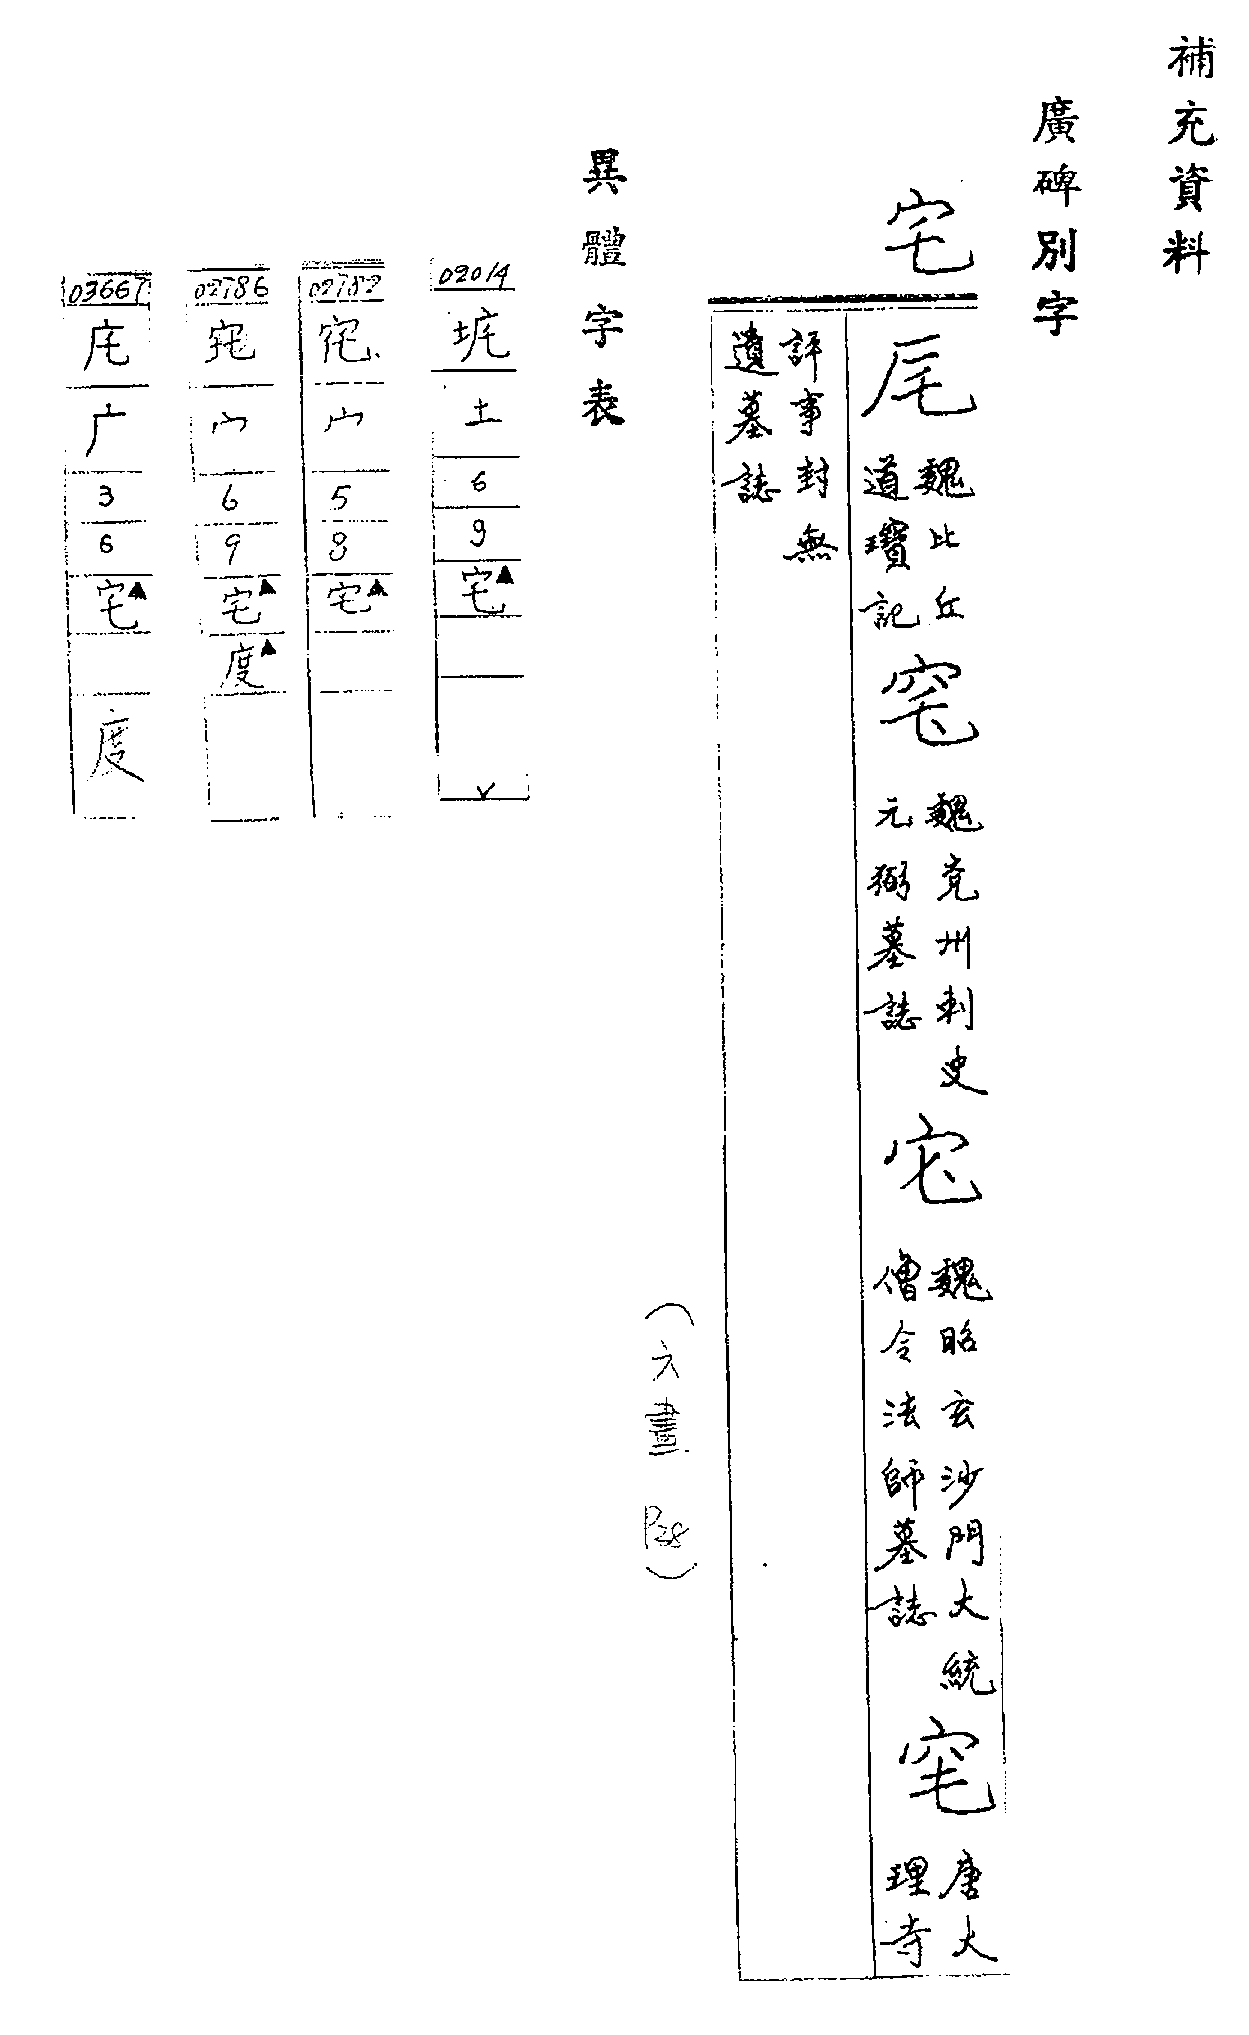 補充資料
廣碑別字
宅
魏比丘
道記
魏兗州刺史
元弼墓誌
魏昭玄沙門大統
僧令法師墓誌
唐大
理寺
評事封無
遺墓誌
(六畫 P28)
異體字表
02014
土
6
9
宅▲
02782
宀
5
8
宅▲
02786
宀
6
9
宅▲
度▲
03667
㡯
广
3
6
宅▲
度